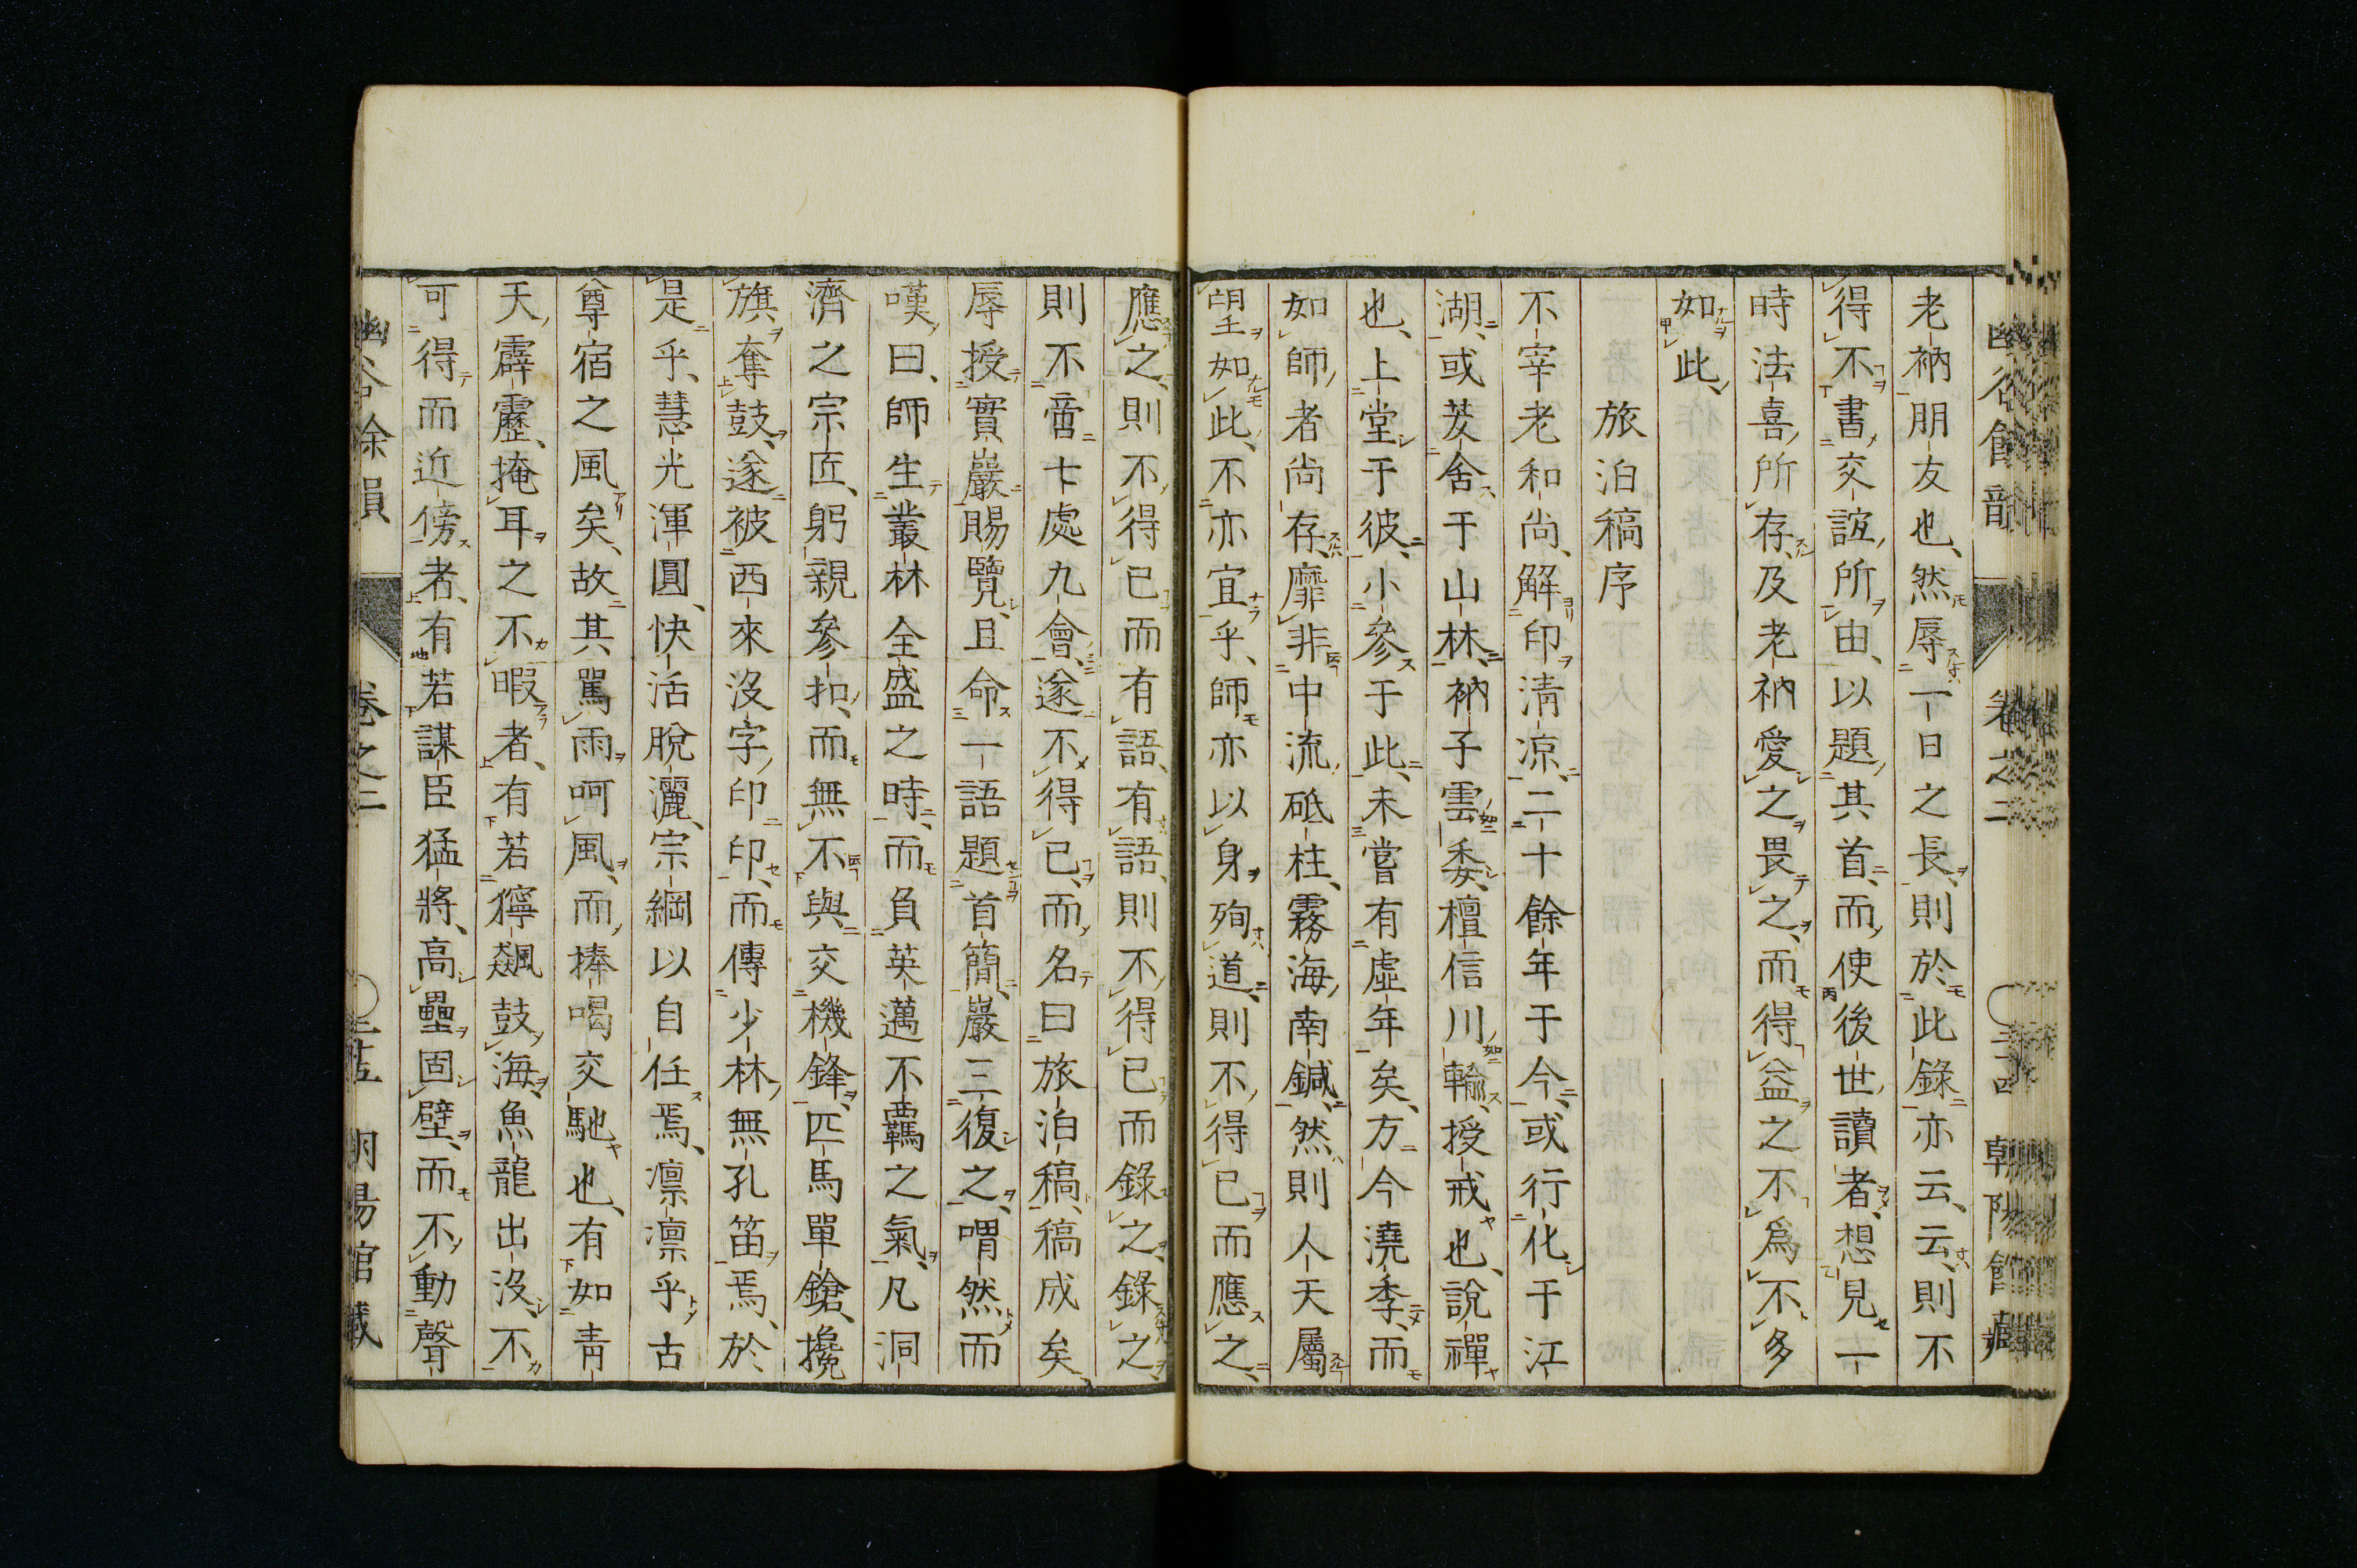 老衲朋友也、然辱一日之長、則於此錄亦云、云則不
得不書交誼所由、以題其首、而使後世讀者、想見一
時法喜所存、及老衲愛之畏之、而得益之不爲不多
如此、
旅泊稿序
不宰老和尚、解印清凉、二十餘年于今、或行化于江
湖、或茇舍于山林、衲子雲委、檀信川輸、授戒也、說禪
也、上堂于彼、小參于此、未嘗有虛年矣、方今澆季、而
如師者尚存、靡非中流砥柱、霧海南鍼、然則人天屬
望如此、不亦宜乎、師亦以身殉道、則不得已而應之、
應之、則不得已而有語、有語、則不得已而錄之、錄之、
則不啻七處九會、遂不得已、而名曰旅泊稿、稿成矣、
辱授實嚴賜覽、且命一語題首簡、嚴三復之、喟然而
嘆曰、師生叢林全盛之時、而負英邁不羈之氣、凡洞
濟之宗匠、躬親參扣、而無不與交機鋒、匹馬單鎗、攙
旗奪鼓、遂被西來沒字印印、而傳少林無孔笛焉、於
是乎、慧光渾圓、快活脫灑、宗綱以自任焉、凛凛乎古
尊宿之風矣、故其罵雨呵風、而棒喝交馳也、有如靑
天霹靂、掩耳之不暇者、有若獰飆鼓海、魚龍出沒、不
可得而近傍者、有若謀臣猛將、高壘固壁、而不動聲
幽谷餘韻　卷之二　〇二十四　朝陽館藏
幽谷餘韻　卷之二　〇二十五　朝陽館藏